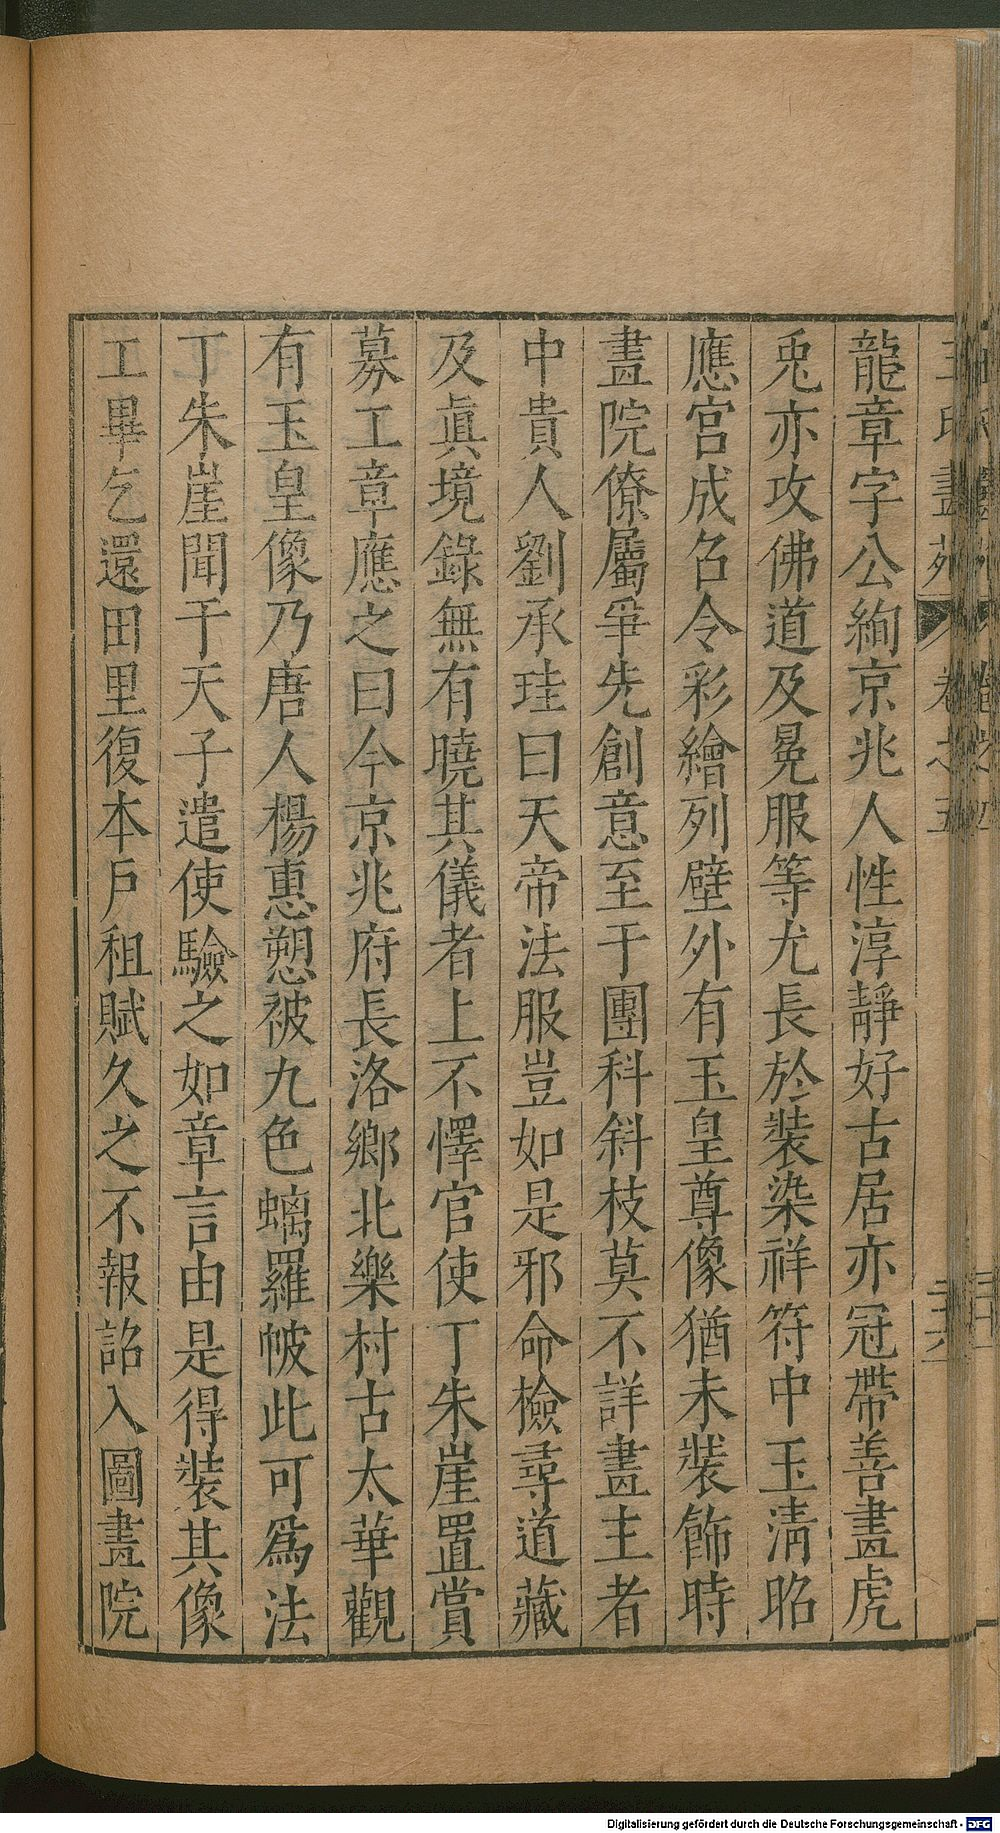 龍章字公絢京兆人性淳靜好古居亦冠帶善畫虎
兎亦攻佛道及冕服等尤長於裝染祥符中玉淸昭
應宮成召令彩繪列壁外有玉皇尊像猶未裝飾時
畫院僚屬爭先創意至于團科斜枝莫不詳畫主者
中貴人劉承珪曰天帝法服豈如是邪命檢尋道藏
及眞境錄無有曉其儀者上不懌官使丁朱崖置賞
募工章應之曰今京兆府長洛鄉北樂村古太華觀
有玉皇像乃唐人楊惠愬被九色螭羅帔此可爲法
丁朱崖聞于天子遣使驗之如章言由是得裝其像
工畢乞還田里復本戶租賦久之不報詔入圖畫院
卷之五
Digitalisierung gefördert durch die Deutsche Forschungsgemeinschaft - DFG